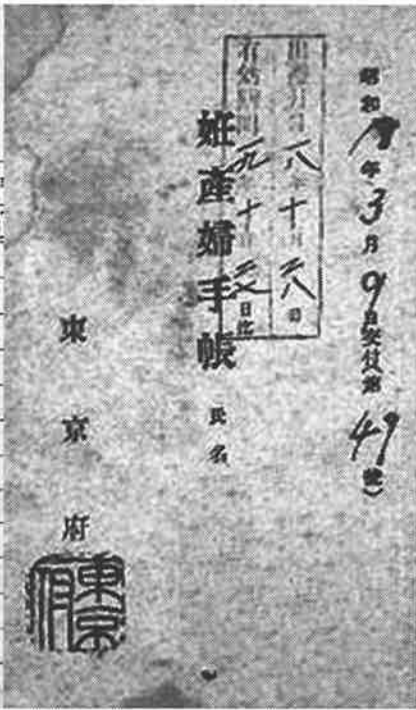 昭和18年3月9日交付第49號)
出産月日 一八年十月二八日
有効期間 一九年十月 日迄
姙産婦手帳
氏名
東京府
東京府